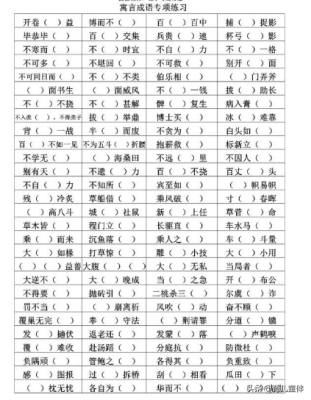 寓言成语专项练习
开卷（ ）益 博而不（ ） 百（ ）百中 捕（ ）捉影
毕恭毕（ ） 百（ ）交集 兵贵（ ）速 杯弓（ ）影
不寒而（ ） 不（ ）时宜 不自（ ）力 不（ ）一格
不可多（ ） 不堪回（ ） 不可救（ ） 不（ ）余力
不可同日而（ ） 不（ ）不类 伯乐相（ ） （ ）门弄斧
（ ）面书生 （ ）面威风 不（ ）一钱 拨（ ）助长
不（ ）不挠 不（ ）甚解 髀（ ）复生 病入膏（ ）
不入虎（ ），不得虎子 拔（ ）举鼎 博士买（ ） 冰（ ）难靠
背（ ）一战 半（ ）而废 不贪为（ ） 白头如（ ）
百（ ）不如一见 不为五斗（ ）折腰 抱薪救（ ） 标新立（ ）
不学无（ ） （ ）海桑田 不远（ ）里 不因人（ ）
别有天（ ） 不遗（ ）力 百（ ）不挠 百丈（ ）头
不自（ ）力 不知所（ ） 宾至如（ ） （ ）帜易帜
残（ ）冷炙 草船借（ ） 乘风破（ ） 寸（ ）春晖
（ ）高八斗 城（ ）社鼠 新（ ）上任 草菅（ ）命
草木皆（ ） 程门立（ ） 长驱直（ ） 车水马（ ）
乘（ ）而来 沉鱼落（ ） 乘人之（ ） 车（ ）斗量
大（ ）如椽 打草惊（ ） 雕（ ）小技 大（ ）小用
（ ）（ ）益善 大腹（ ）（ ） 大（ ）无私 当局者（ ）
大逆不（ ） 大（ ）晚成 当（ ）之急 开（ ）布公
不得要（ ） 抛砖引（ ） 二桃杀三（ ） 尔虞（ ）诈
罚不当（ ） （ ）崩离析 风吹（ ）动 奋不顾（ ）
覆巢无完（ ） 奉（ ）守法 （ ）荆请罪 分道（ ）镳
发（ ）擿伏 返老还（ ） 发蒙（ ）落 （ ）声鹤唳
覆（ ）难收 赴汤蹈（ ） 分庭抗（ ） 防微杜（ ）
负隅顽（ ） 管鲍之（ ） 各得其（ ） 负重致（ ）
感（ ）图报 过（ ）拆桥 刮（ ）相看 瓜田（ ）下
（ ）枕无忧 各自为（ ） 华而不（ ）